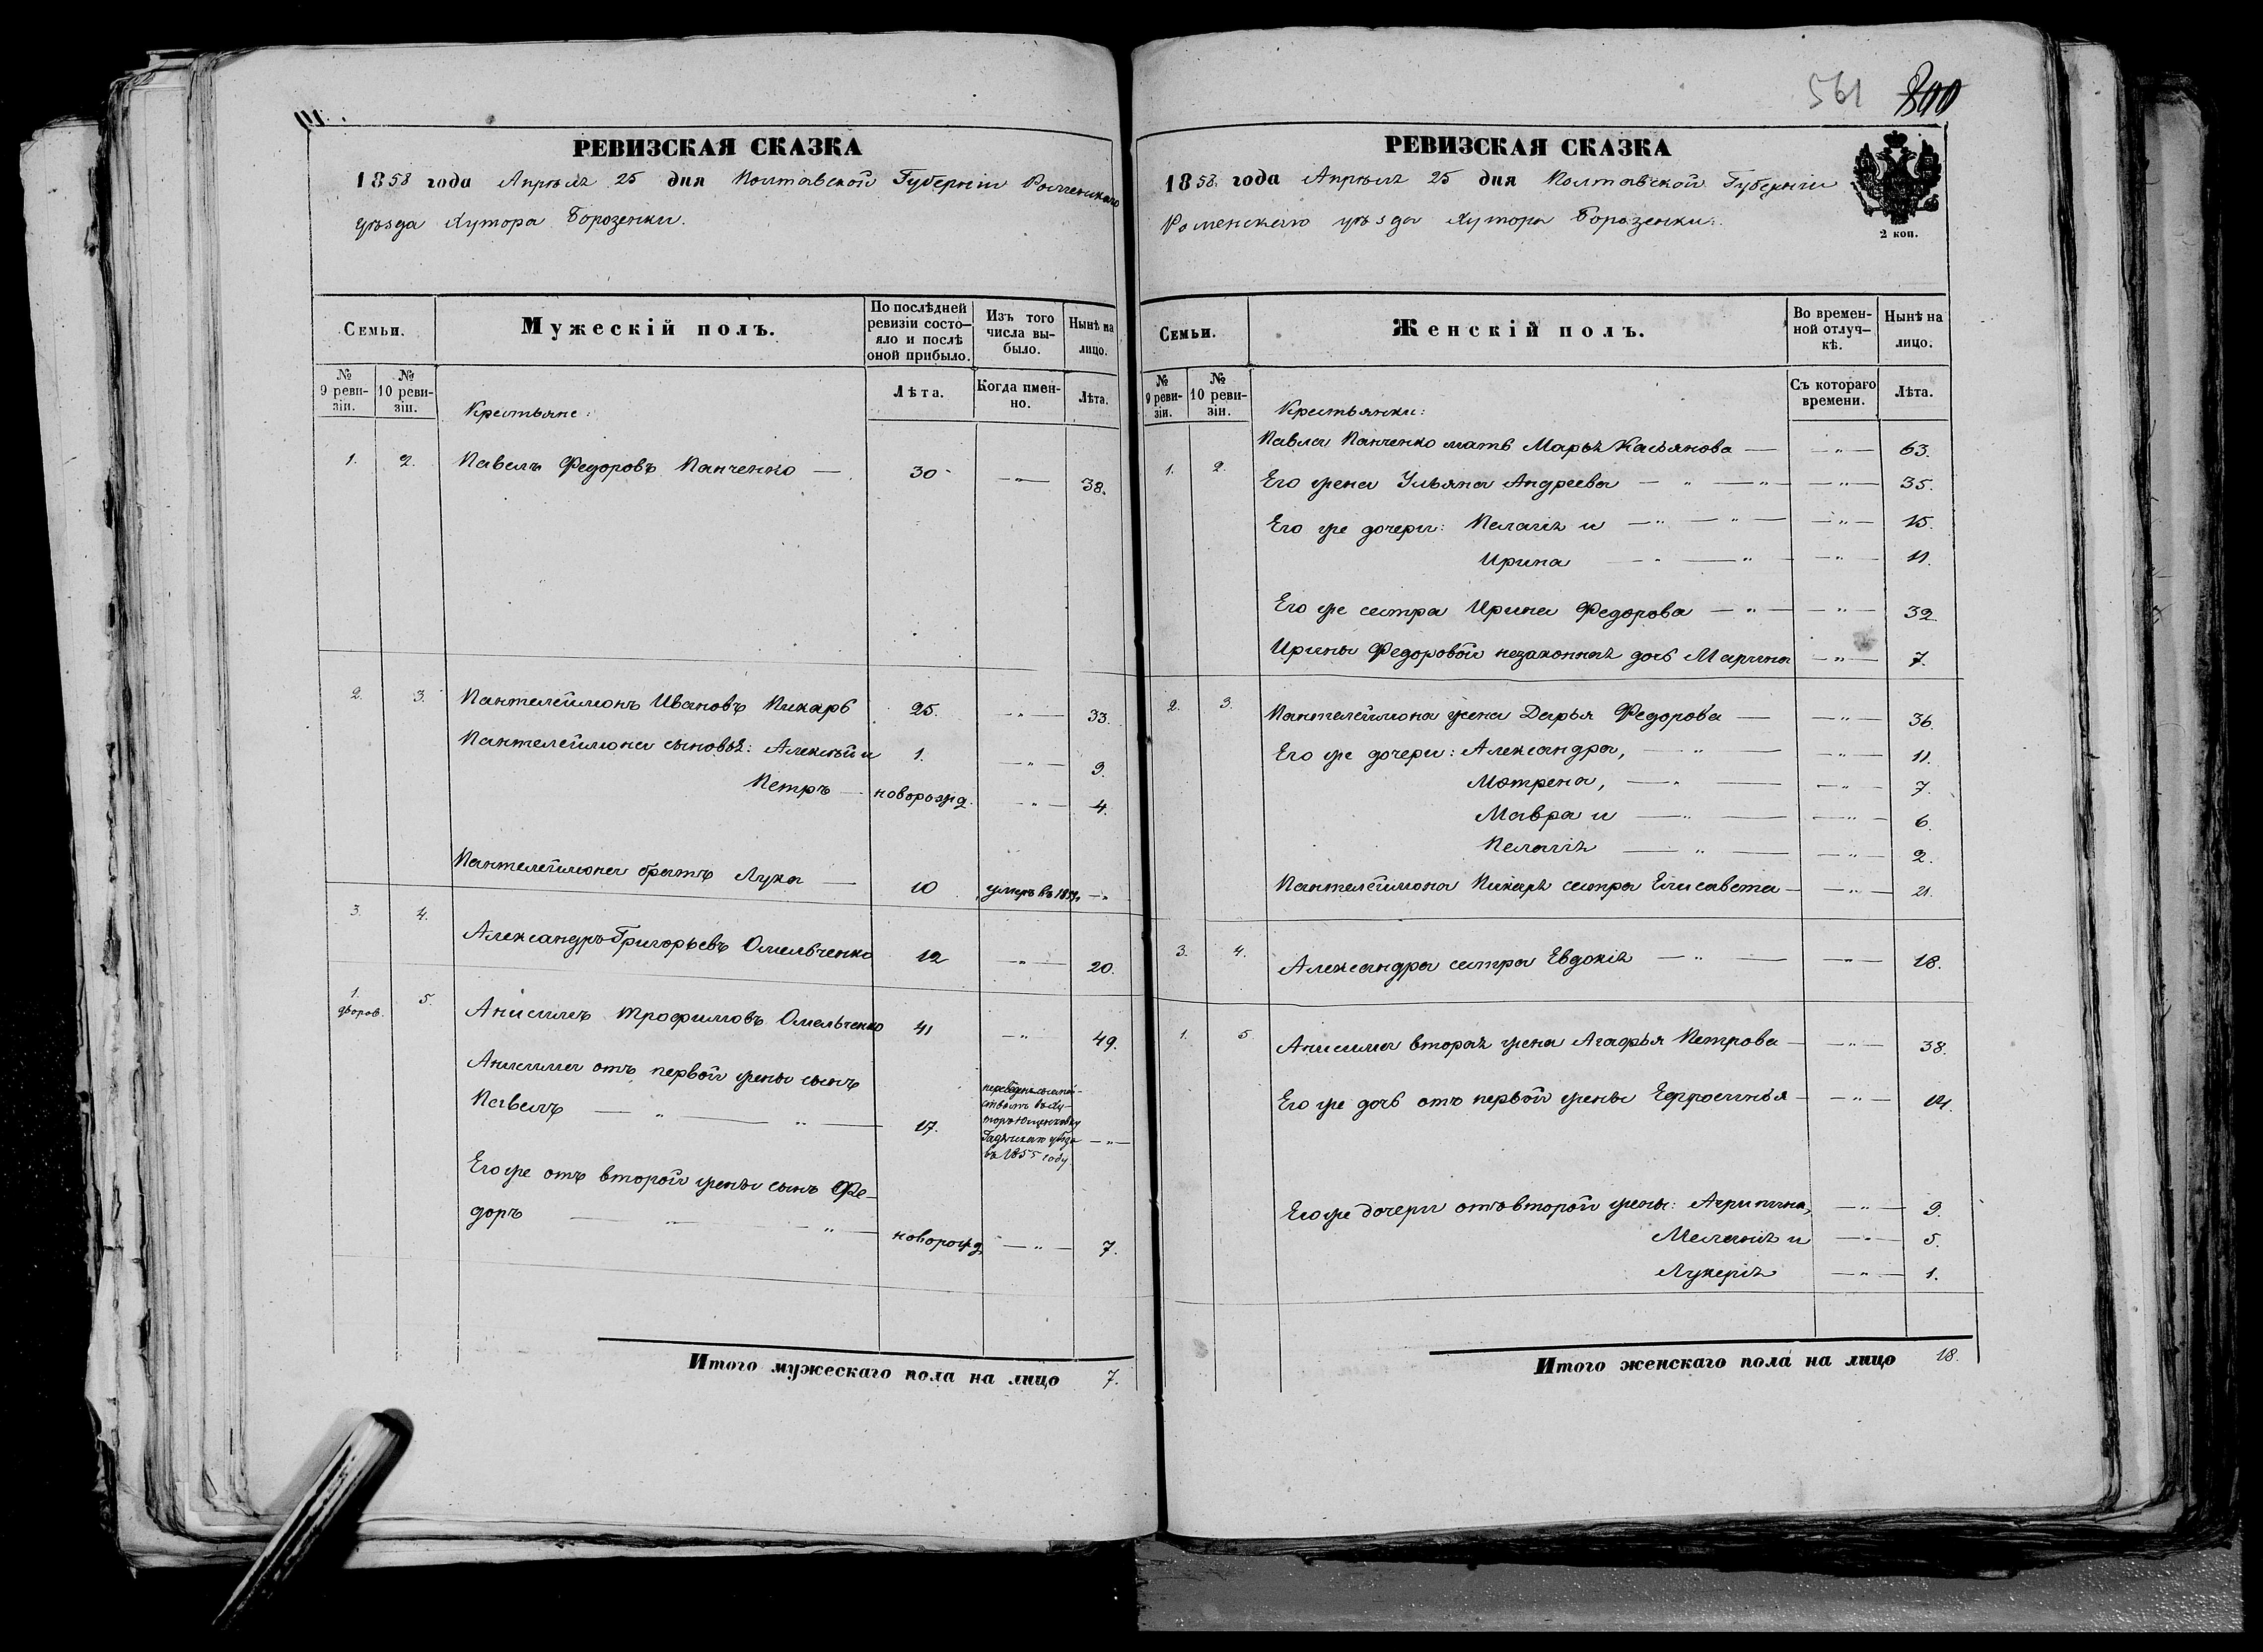 561 800
РЕВИЗСКАЯ СКАЗКА
1858 года Апрѣля 25 дня Полтавской Губерніи Роменскаго
уѣзда Хутора Борозенки.
Семьи.
Мужескій полъ.
По послѣдней ревизіи состо-
яло и послѣ оной прибыло.
Изъ того числа вы-
было.
Нынѣ на лицо.
№ 9 реви-
зіи.
№ 10 реви-
зіи.
Лѣта.
Когда имен-
но.
Лѣта.
Крестьяне:
1. 2. Павелъ Федоровъ Панченко — 30 — " — 38.
2. 3. Пантелеймонъ Ивановъ Пикарь 25. — " — 33.
Пантелеймона сыновья: Алексѣй и 1. — " — 9.
Петръ — новорожд. — " — 4.
Пантелеймона братъ Лука — 10 умеръ въ — "
3. 4. Александръ Григорьевъ Омельченко 12 — " — 20.
1. дворов. 5. Анисимъ Трофимовъ Омельченко 41 — " — 49.
Анисима отъ первой жены сынъ
Павелъ — " — " — 17. — " —
переведенъ
въ Ху-
торъ
Гадячскаго уѣзда
въ 1855 году.
Его же отъ второй жены сынъ Фе-
доръ — " — " — новорожд. — " — 7.
Итого мужескаго пола на лицо 7.
РЕВИЗСКАЯ СКАЗКА
1858 года Апрѣля 25 дня Полтавской Губерніи
Роменскаго уѣзда Хутора Борозенки.
2 коп.
Семьи.
Женскій полъ.
Во времен-
ной отлуч-
кѣ.
Нынѣ на лицо.
№ 9 реви-
зіи.
№ 10 реви-
зіи.
Съ котораго времени.
Лѣта.
Крестьянки:
Павла Панченко мать Марья Касьянова — — " — 63.
1. 2. Его жена Ульяна Андреева — " — " — — " — 35.
Его же дочери: Пелагія и — " — " — — " — 15.
Ирина — " — " — — " — 11.
Его же сестра Ирина Федорова — " — — " — 32.
Ирины Федоровой незаконная дочь Марина — " — 7.
2. 3. Пантелеймона жена Дарья Федорова — — " — 36.
Его же дочери: Александра, — " — — " — 11.
Мотрена, — " — — " — 7.
Мавра и — " — — " — 6.
Пелагія — " — — " — 2.
Пантелеймона Пикаря сестра Елисавета — — " — 21.
3. 4. Александра сестра Евдокія — " — — " — 18.
1. 5. Анисима вторая жена Агафья Петрова — — " — 38.
Его же дочь отъ первой жены Ефросинья — — " — 14.
Его же дочери отъ второй жены: Агрипина, — " — 9.
Меланія и — " — 5.
Лукерія — " — 1.
Итого женскаго пола на лицо 18.